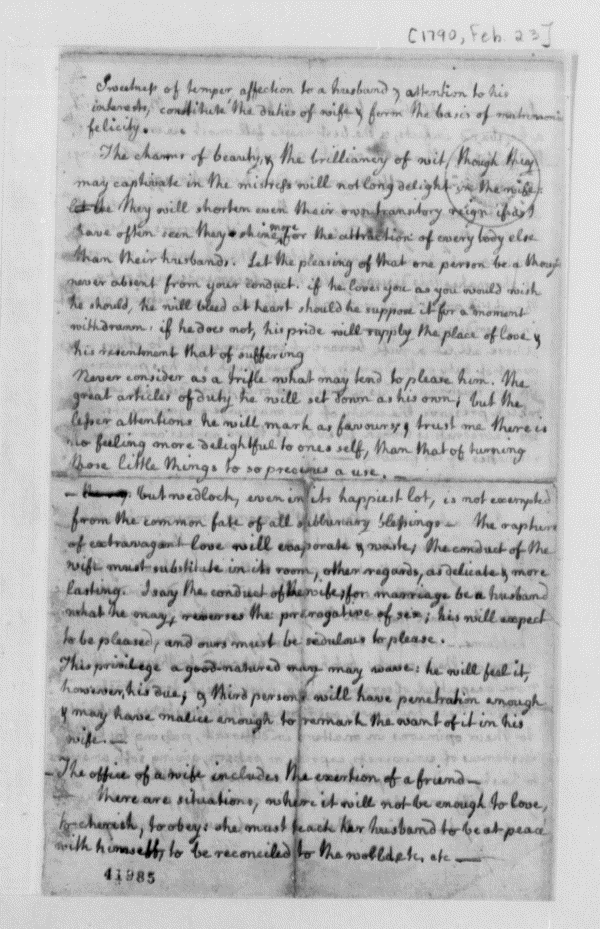 [1790, Feb. 23]
Sweetness of temper affection to a husband & attention to his
interests, constitute the duties of wife & form the basis of matrimonial
felicity.
The charms of beauty, & the brilliancy of wit, though they
may captivate in the mistress will not long delight in the wife:
they will shorten even their own transitory reign if as I
have often seen they shine more for the attraction of every body else
than their husbands. Let the pleasing of that one person be a thought
never absent from your conduct. if he loves you as you would wish
he should, he will bleed at heart should he suppose it for a moment
withdrawn: if he does not, his pride will supply the place of love &
his resentment that of suffering
Never consider as a trifle what may tend to please him. The
great articles of duty he will set down as his own; but the
lesser attentions he will mark as favours; & trust me there is
no feeling more delightful to one's self, than that of turning
those little things to so precious a use. —
— but wedlock, even in its happiest lot, is not exempted
from the common fate of all sublunary blessings — The rapture
of extravagant love will evaporate & waste; the conduct of the
wife must substitute in its room, other regards, as delicate & more
lasting. I say the conduct of the wife; for marriage be a husband
what he may, reverses the prerogative of sex; his will expect
to be pleased, and ours must be sedulous to please.
This privilege a good-natured man may wave: he will feel it,
however, his due; & third persons will have penetration enough
& may have malice enough to remark the want of it in his
wife. —
— The office of a wife includes the exertion of a friend —
There are situations, where it will not be enough to love,
to cherish, to obey: she must teach her husband to be at peace
with himself, to be reconciled to the world &c. etc —
41985